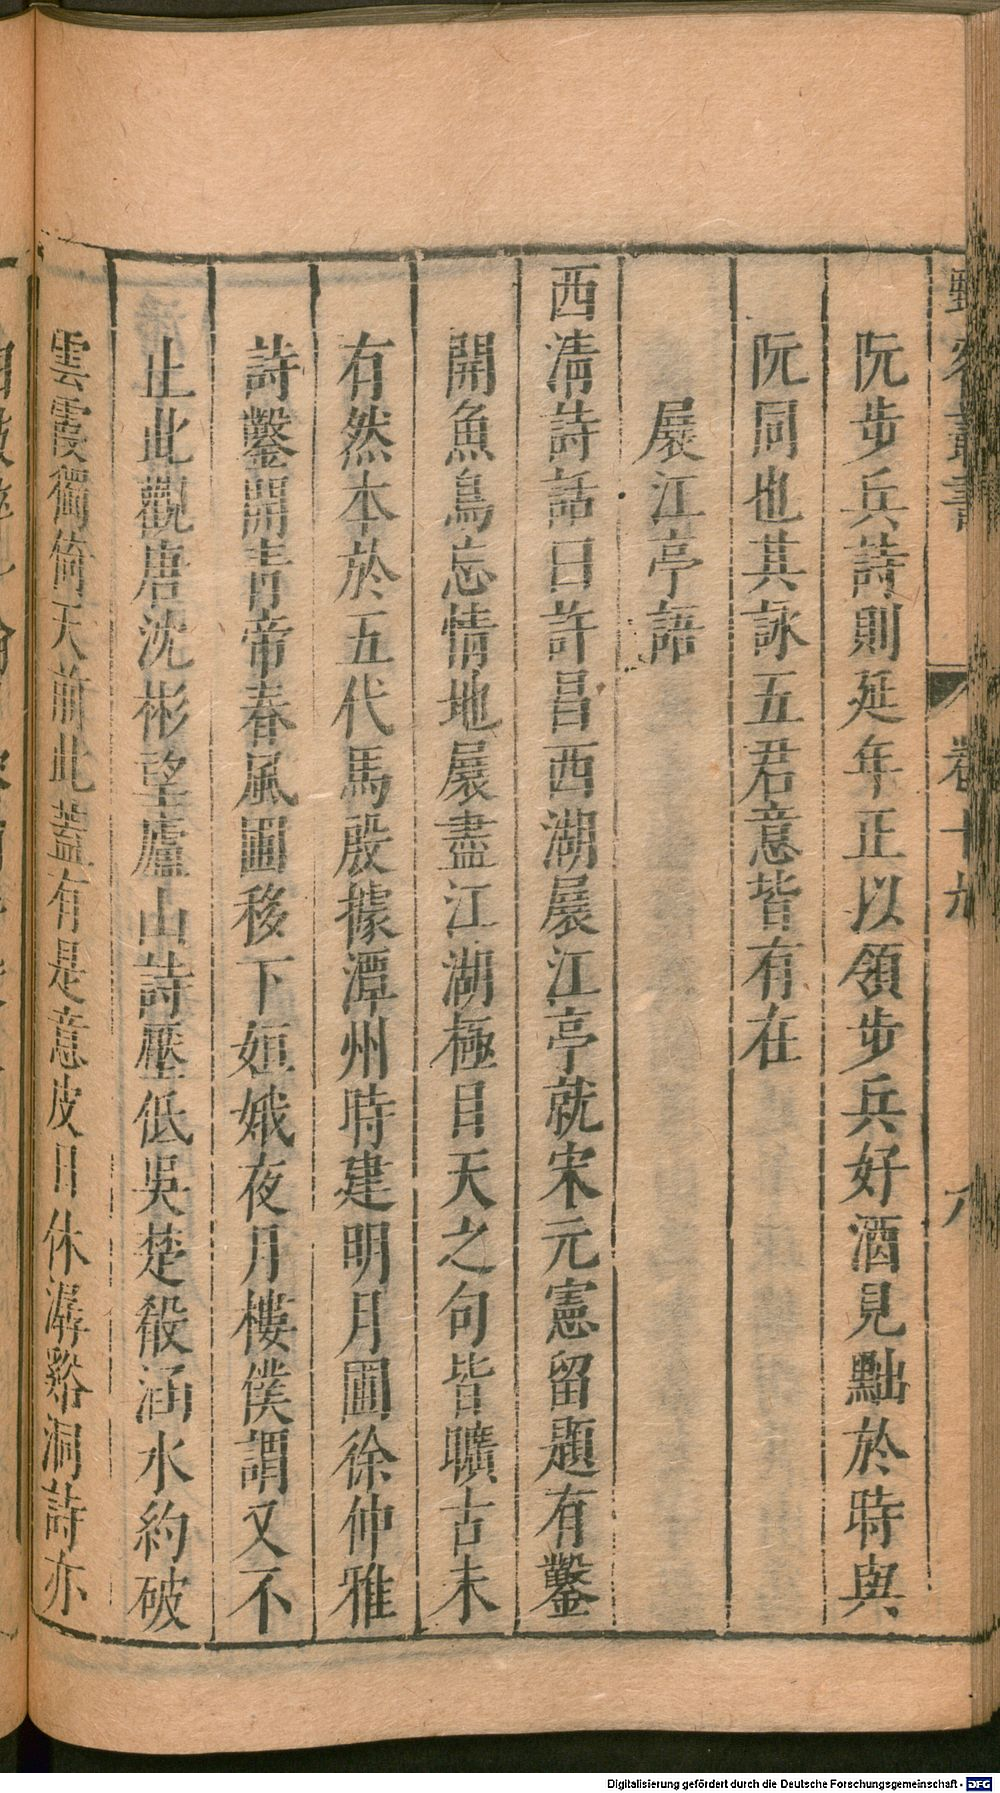 阮步兵詩則延年正以領步兵好酒見黜於時與
阮同也其詠五君意皆有在
展江亭語
西淸詩話曰許昌西湖展江亭就宋元憲留題有鑿
開魚鳥忘情地展盡江湖極目天之句皆曠古未
有然本於五代馬殷據潭州時建明月圃徐仲雅
詩鑿開青帝春風圃移下姮娥夜月樓僕謂又不
止此觀唐沈彬望廬山詩壓低吳楚殽涵水約破
雲霞獨倚天前此蓋有是意皮日休潺谿洞詩亦
卷十
八
Digitalisierung gefördert durch die Deutsche Forschungsgemeinschaft - DFG